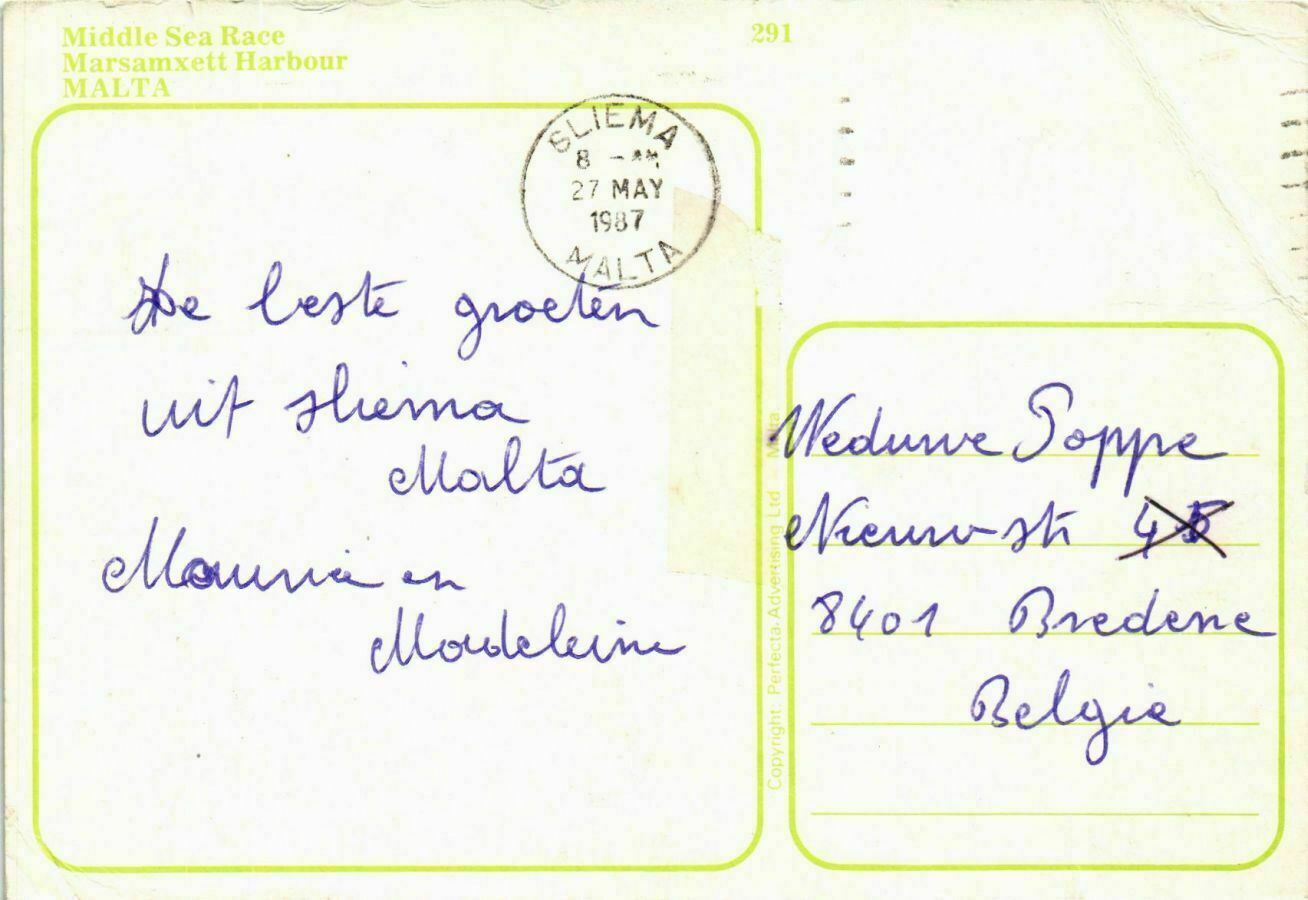 Middle Sea Race
Marsamxett Harbour
MALTA
291
SLIEMA
8 - AM
27 MAY
1987
MALTA
De beste groeten
uit sliema
Malta
Mauric en
Madeleine
Weduwe Poppe
Nieuwstr 45
8401 Bredene
Belgie
Copyright: Perfecta Advertising Ltd - Malta